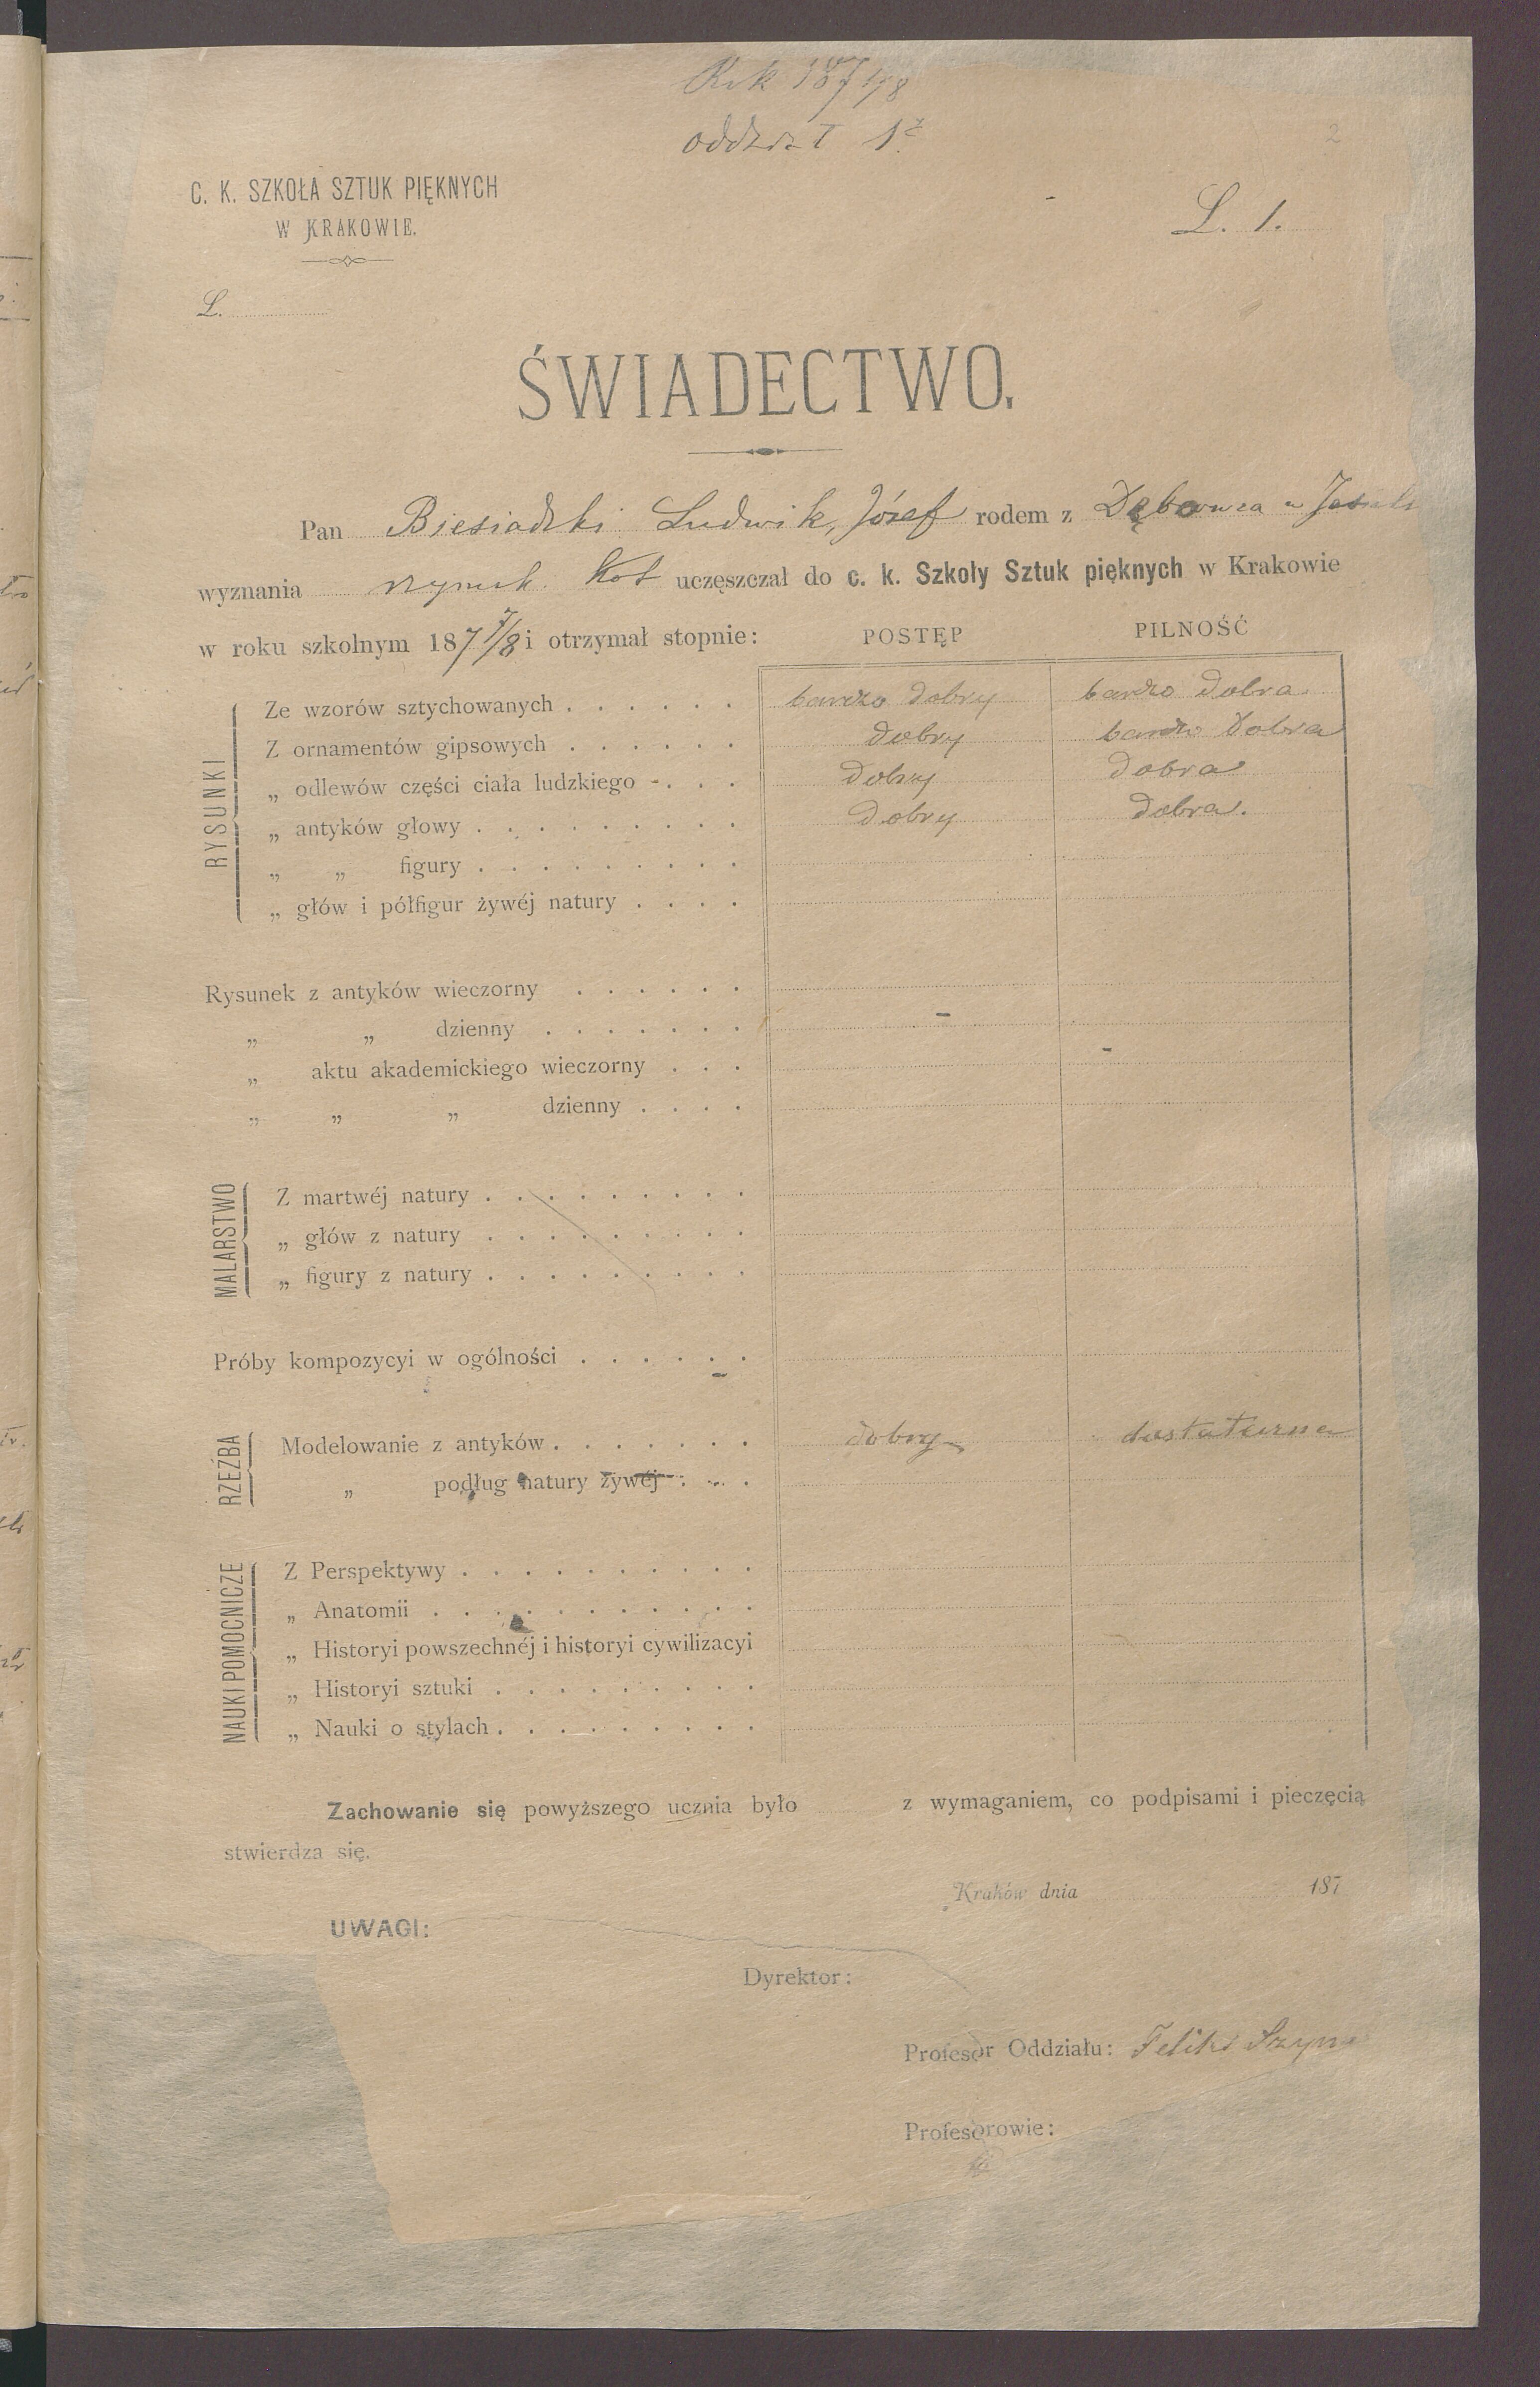 Rok 187 7/8
oddział 1.
2
C. K. SZKOŁA SZTUK PIĘKNYCH
W KRAKOWIE.
L. 1.
L.
ŚWIADECTWO.
Pan Biesiadzki Ludwik, Józef rodem z Dębowca
wyznania rzymsk. kat uczęszczał do c. k. Szkoły Sztuk pięknych w Krakowie
w roku szkolnym 187 7/8 i otrzymał stopnie: POSTĘP PILNOŚĆ
RYSUNKI
Ze wzorów sztychowanych . . . . . . bardzo dobry bardzo dobra
Z ornamentów gipsowych . . . . . . dobry bardzo dobra
„ odlewów części ciała ludzkiego . . . dobry dobra
„ antyków głowy . . . . . . . . . dobry dobra.
„ „ figury . . . . . . . . .
„ głów i półfigur żywéj natury . . . .
Rysunek z antyków wieczorny . . . . . .
„ „ dzienny . . . . . . .
„ aktu akademickiego wieczorny . . .
„ „ „ dzienny . . . .
MALARSTWO
Z martwéj natury . . . . . . . . .
„ głów z natury . . . . . . . . .
„ figury z natury . . . . . . . . .
Próby kompozycyi w ogólności . . . . . .
RZEŹBA
Modelowanie z antyków . . . . . . . dobry dostateczna
„ podług natury żywéj . . .
NAUKI POMOCNICZE
Z Perspektywy . . . . . . . . . .
„ Anatomii . . . . . . . . . . .
„ Historyi powszechnéj i historyi cywilizacyi
„ Historyi sztuki . . . . . . . . .
„ Nauki o stylach . . . . . . . . .
Zachowanie się powyższego ucznia było z wymaganiem, co podpisami i pieczęcią
stwierdza się.
Kraków dnia 187
UWAGI:
Dyrektor:
Profesor Oddziału: Feliks Szyn
Profesorowie: